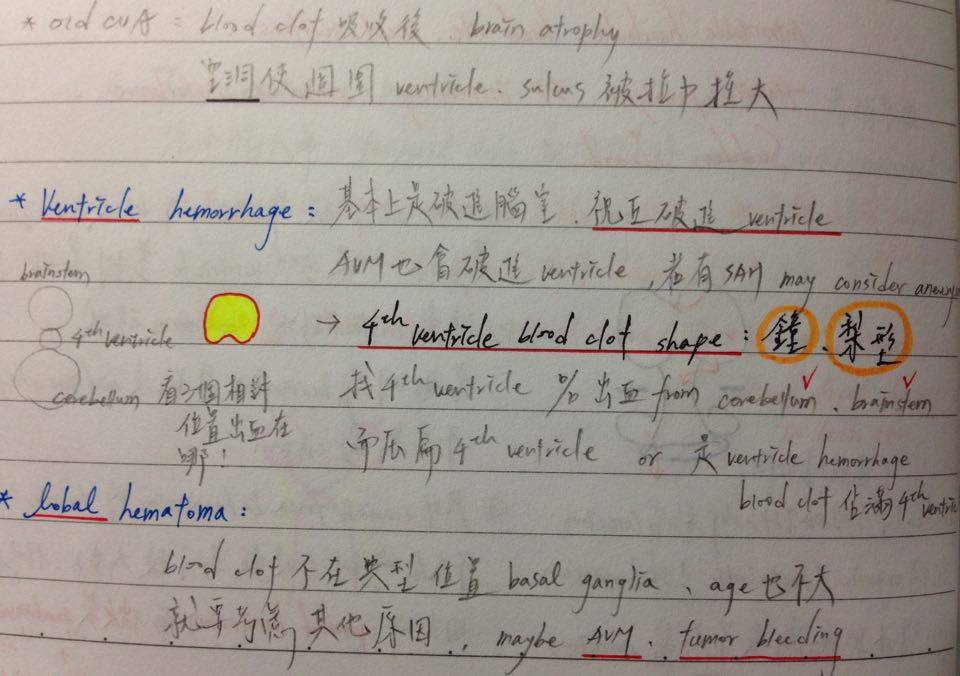 * old CVA : blood clot 吸收後 brain atrophy
空洞使週圍 ventricle、sulcus 被拉大
* Ventricle hemorrhage : 基本上是破進腦室、視丘破進 ventricle
AVM也會破進 ventricle, 若有 SAH may consider
brainstem
4th ventricle
→ 4th ventricle blood clot shape : 鐘、梨型
cerebellum
看3個相對
位置出血在
哪!
找 4th ventricle 出血 from cerebellum、brainstem
而壓扁 4th ventricle or 是 ventricle hemorrhage
blood clot 佔滿 4th
* lobal hematoma :
blood clot 不在典型位置 basal ganglia、age也不大
就要考慮其他原因, maybe AVM、tumor bleeding